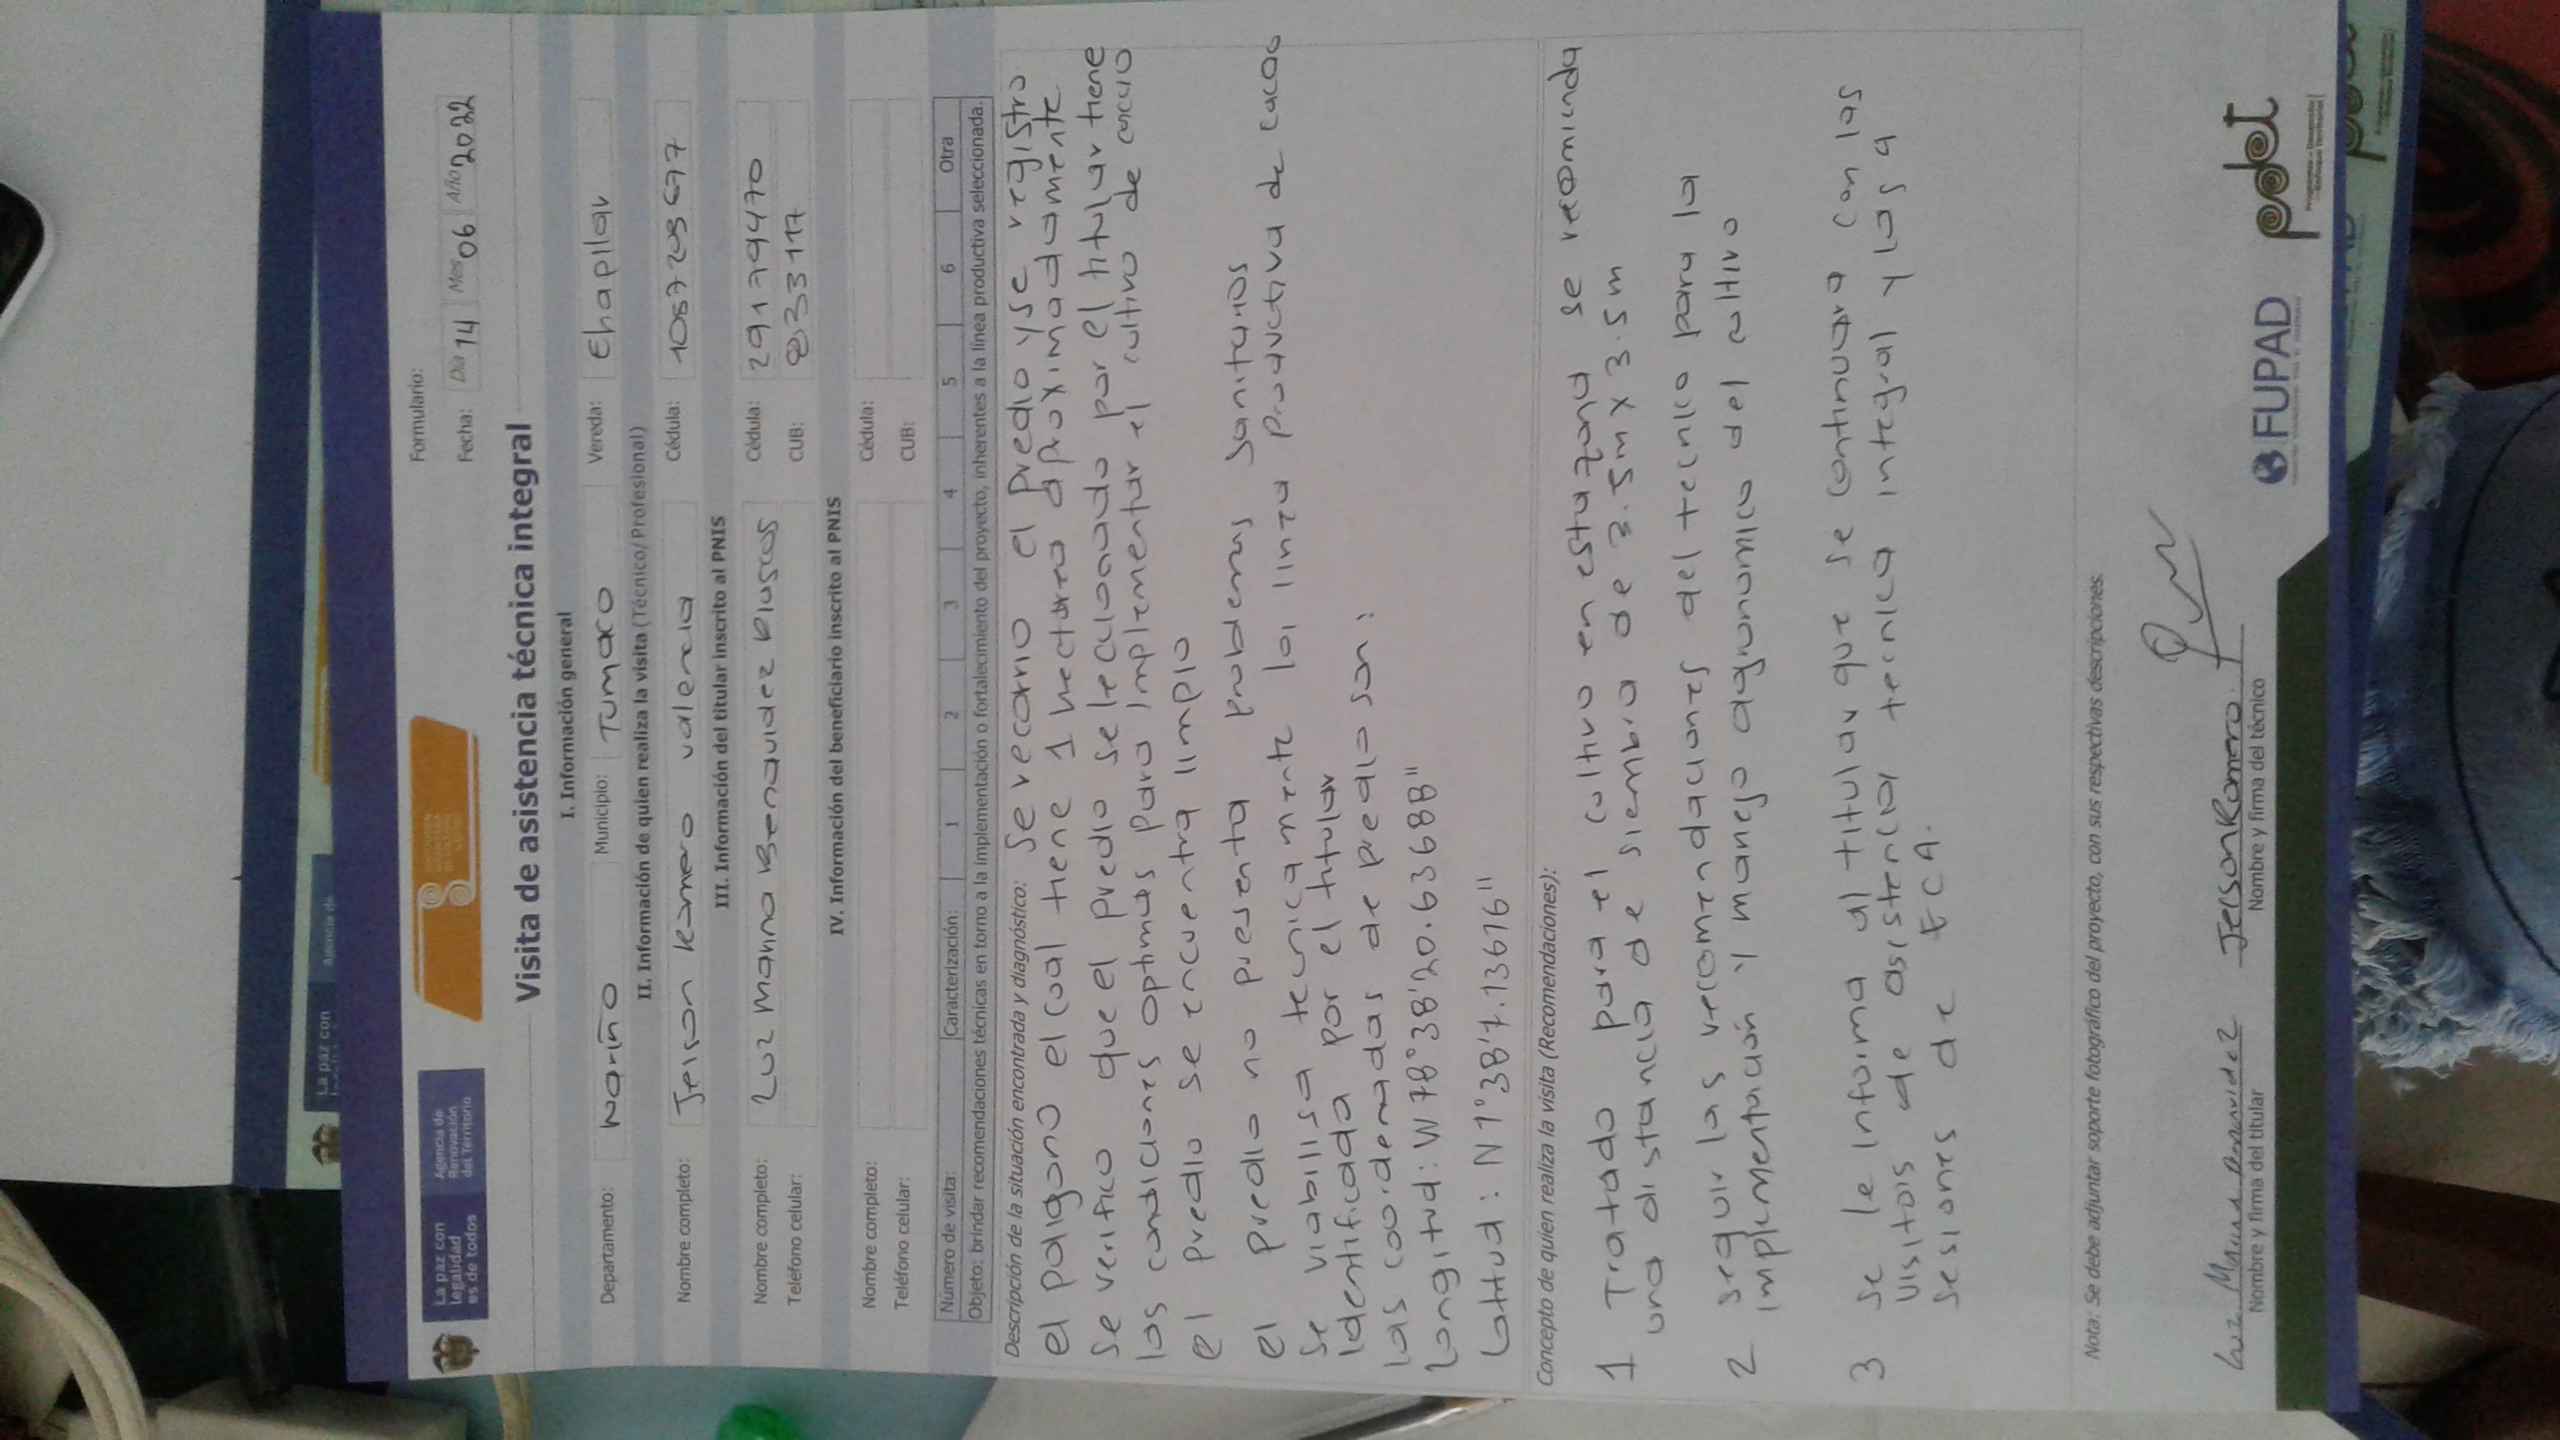 La paz con legalidad es de todos
Agencia de Renovación del Territorio
Formulario:
Fecha: Día 14 Mes 06 Año 2022
Visita de asistencia técnica integral
I. Información general
Departamento: Nariño Municipio: Tumaco Vereda: Chapilar
II. Información de quien realiza la visita (Técnico/ Profesional)
Nombre completo: Jeison Romero valencia Cédula:
III. Información del titular inscrito al PNIS
Nombre completo: Luz Marina Benavidez Cédula: 29179470
Teléfono celular: CUB: 833117
IV. Información del beneficiario inscrito al PNIS
Nombre completo: Cédula:
Teléfono celular: CUB:
Número de visita: Caracterización: 1 2 3 4 5 6 Otra
Objeto: brindar recomendaciones técnicas en torno a la implementación o fortalecimiento del proyecto, inherentes a la línea productiva seleccionada.
Descripción de la situación encontrada y diagnóstico: Se recorrio el predio y se registro
el poligono el cual tiene 1 hectarea aproximadamente
Se verifico que el predio seleccionado por el titular tiene
las condiciones optimas para implementar el cultivo de cacao
el predio se encuentra limpio
el predio no presenta problemas sanitarios
Se viabilisa tecnicamente la linea productiva de cacao
identificada por el titular
las coordenadas de predio son:
Longitud: W 78°38'20.63688"
Latitud: N 1°38'7.13616"
Concepto de quien realiza la visita (Recomendaciones):
1 Tratado para el cultivo en estu zona se recomienda
una distancia de siembra de 3.5m x 3.5m
2 seguir las recomendaciones del tecnico para la
implementación y manejo agronomico del cultivo
3 Se le informa al titular que se continuara con las
visitas de asistencia tecnica integral y las 4
sesiones de ECA.
Nota: Se debe adjuntar soporte fotográfico del proyecto, con sus respectivas descripciones.
Luz Marina Benavidez Jeison Romero.
Nombre y firma del titular Nombre y firma del técnico
FUPAD pdet